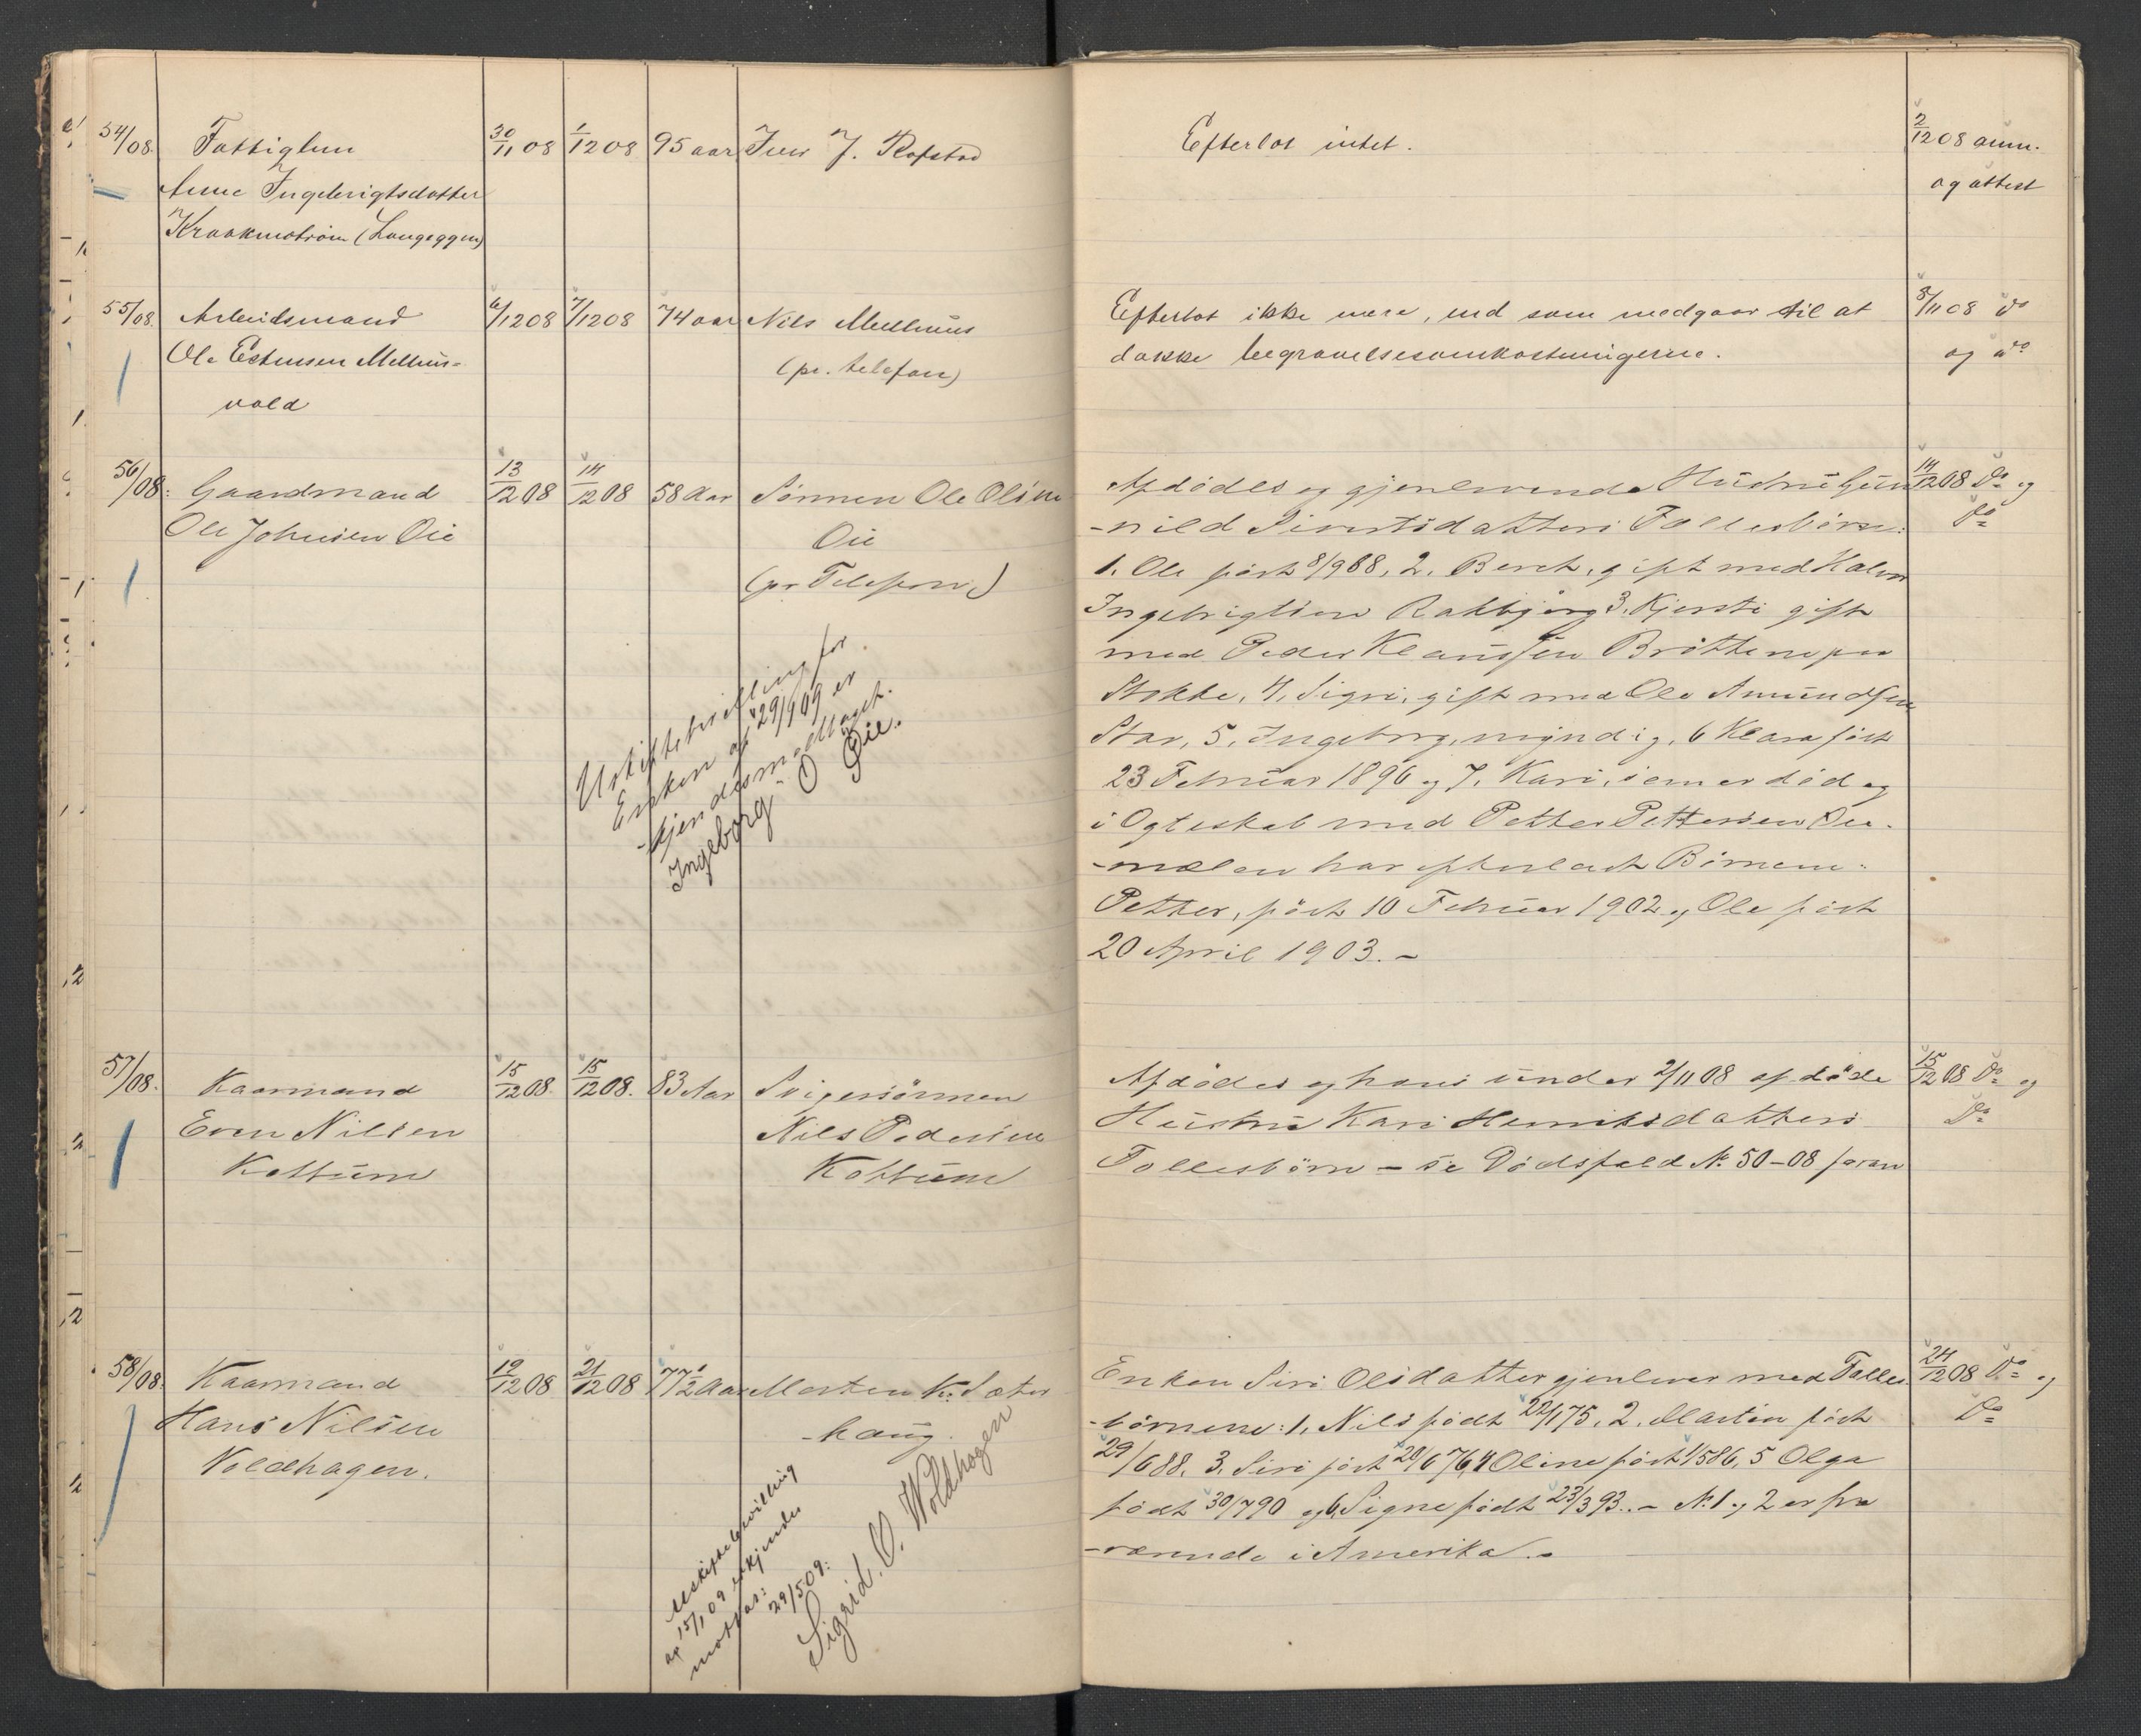 54/08. Fattiglem 30/11 08 1/12 08 95 aar Iver J. Rofstad Efterlot intet. 2/12 08 anm.
Anne Ingebrigtsdatter og attest
Kraakmoström (Langeggen)
55/08. Arbeidsmand 6/12 08 7/12 08 74 aar Nils Melhuus Efterlot ikke mere, end som medgaar til at 8/11 08 do
Ole Estensen Melhus- (pr. telefon) dække begravelsesomkostningerne. og do
vald
56/08. Gaardmand 13/12 08 14/12 08 58 Aar Sønnen Ole Olsen Afdødes og gjenlevende Hustru Gun- 14/12 08 Do og
Ole Johnsen Øie Øie -nild Sivertsdatters Fællesbörn: Do
(pr Telefon) 1. Ole född 8/9 88, 2. Beret, gift med Halvor
Ingebrigtsen Rakbjörg 3. Kjersti gift
med Peder Klaussen Bröttene paa
Stokke, 4. Sigri, gift med Ole Amundsen
Star, 5. Ingeborg, myndig, 6 Klara födt
23 Februar 1896 og 7. Kari, som er död og
i Ægteskab med Petter Pettersen Øie-
-mælen har efterladt Börnene:
Petter, födt 10 Februar 1902 og Ole födt
20 April 1903. -
Uskiftebevilling for
Enken af 29/1 09 er
-kjendes mottaget.
Ingeborg O Øie.
57/08. Kaarmand 15/12 08. 15/12 08. 83 Aar Svigersönnen Afdödes og hans under 2/11 08 afdöde 15/12 08 Do og
Even Nilsen Nils Pedersen Hustru Kari Henriksdatters Do
Kottum Kottum Fællesbörn - se Dödsfald No 50-08 foran
58/08. Kaarmand 19/12 08 21/12 08 77 1/2 Aar Morten K. Sæter- Enken Siri Olsdatter gjenlever med Fælles- 24/12 08 Do og
Hans Nilsen -haug. -börnene: 1, Nils födt 22/1 75, 2. Martin födt Do
Voldhagen. 29/6 88, 3. Siri födt 20/6 76, 4 Oline födt 1/5 86, 5 Olga
födt 30/7 90 og 6, Signe födt 23/3 93. - No 1 og 2 er fra-
-værende i Amerika. -
Uskiftebevilling
af 15/1 09 erkjendes
mottat: 29/5 09:
Sigrid. O. Woldhagen